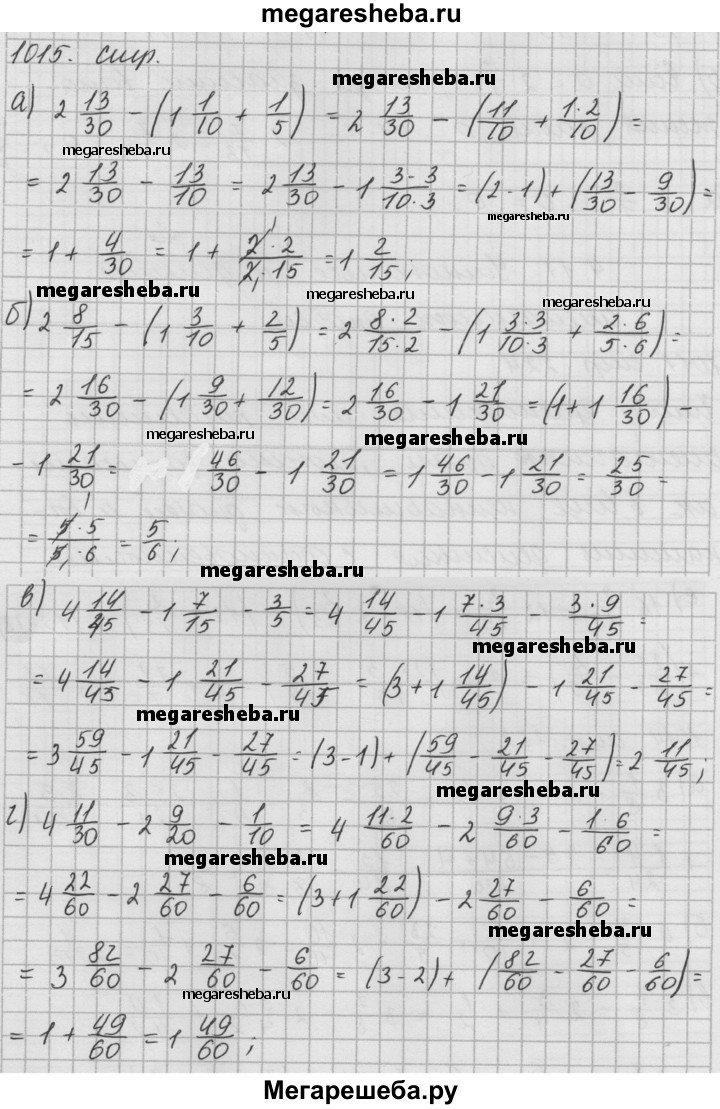 megaresheba.ru
1015. стр.
megaresheba.ru
а) 2 13/30 - (1 1/10 + 1/5) = 2 13/30 - (11/10 + 1·2/10) =
megaresheba.ru
= 2 13/30 - 13/10 = 2 13/30 - 1 3·3/10·3 = (2-1) + (13/30 - 9/30) =
megaresheba.ru
= 1 + 4/30 = 1 + 2·2/2·15 = 1 2/15;
megaresheba.ru megaresheba.ru megaresheba.ru
б) 2 8/15 - (1 3/10 + 2/5) = 2 8·2/15·2 - (1 3·3/10·3 + 2·6/5·6) =
= 2 16/30 - (1 9/30 + 12/30) = 2 16/30 - 1 21/30 = (1 + 1 16/30) -
megaresheba.ru megaresheba.ru
- 1 21/30 = 1 46/30 - 1 21/30 = 1 46/30 - 1 21/30 = 25/30 =
= 5·5/5·6 = 5/6;
megaresheba.ru
в) 4 14/45 - 1 7/15 - 3/5 = 4 14/45 - 1 7·3/45 - 3·9/45 =
megaresheba.ru
= 4 14/45 - 1 21/45 - 27/45 = (3 + 1 14/45) - 1 21/45 - 27/45 =
megaresheba.ru
= 3 59/45 - 1 21/45 - 27/45 = (3-1) + (59/45 - 21/45 - 27/45) = 2 11/45;
megaresheba.ru
г) 4 11/30 - 2 9/20 - 1/10 = 4 11·2/60 - 2 9·3/60 - 1·6/60 =
megaresheba.ru
= 4 22/60 - 2 27/60 - 6/60 = (3 + 1 22/60) - 2 27/60 - 6/60 =
megaresheba.ru
= 3 82/60 - 2 27/60 - 6/60 = (3-2) + (82/60 - 27/60 - 6/60) =
megaresheba.ru
= 1 + 49/60 = 1 49/60;
Мегарешеба.ру